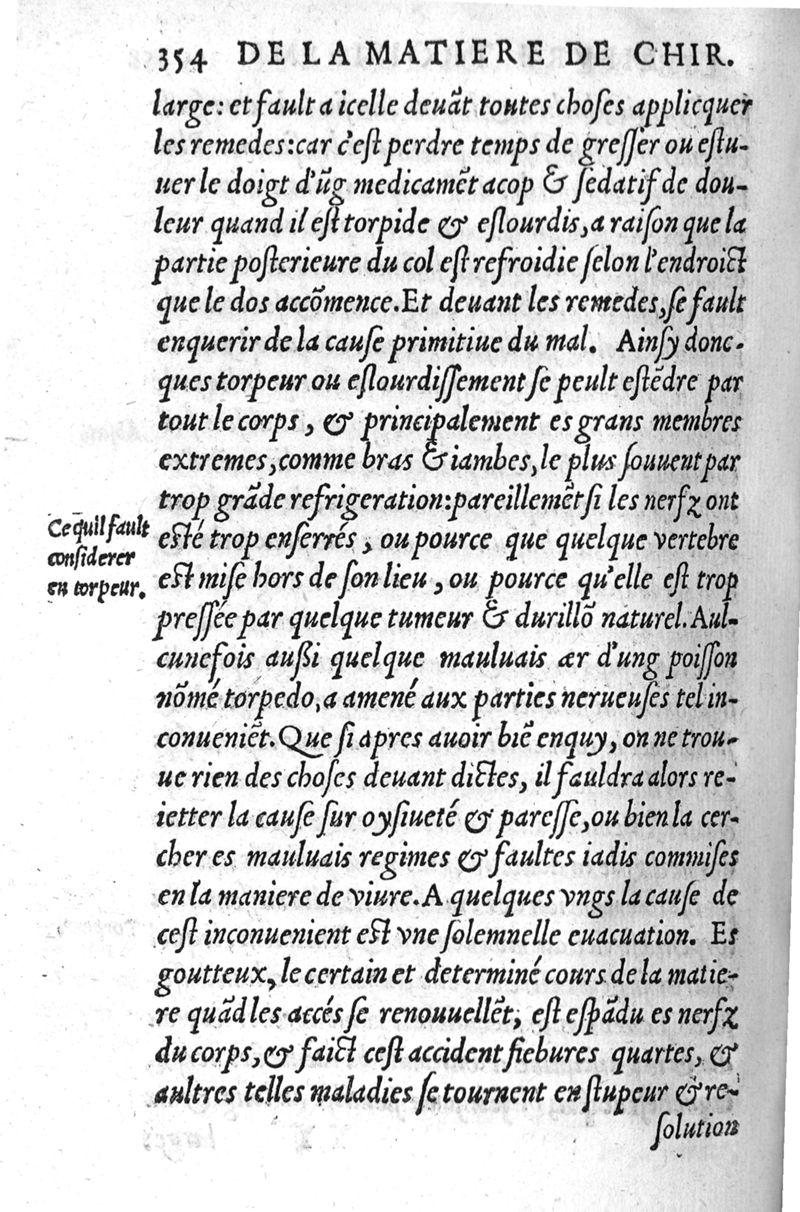 354 DE LA MATIERE DE CHIR.
large: et fault a icelle deuãt toutes choſes applicquer
les remedes: car c'eſt perdre temps de greſſer ou eſtu-
uer le doigt d'ũg medicamẽt acop & ſedatif de dou-
leur quand il eſt torpide & eſlourdis, a raiſon que la
partie poſterieure du col eſt refroidie ſelon l'endroict
que le dos accõmence. Et deuant les remedes, ſe fault
enquerir de la cauſe primitiue du mal. Ainſy donc-
ques torpeur ou eſlourdiſſement ſe peult eſtẽdre par
tout le corps, & principalement es grans membres
extremes, comme bras & iambes, le plus ſouuent par
trop grãde refrigeration: pareillemẽt ſi les nerfz ont
Ce quil fault
conſiderer
en torpeur.
eſté trop enſerrés, ou pource que quelque vertebre
eſt miſe hors de ſon lieu, ou pource qu'elle eſt trop
preſſée par quelque tumeur & durillõ naturel. Aul-
cunefois auſſi quelque mauluais ær d'ung poiſſon
nõmé torpedo, a amené aux parties nerueuſes tel in-
conueniẽt. Que ſi apres auoir biẽ enquy, on ne trou-
ue rien des choſes deuant dictes, il fauldra alors re-
ietter la cauſe ſur oyſiueté & pareſſe, ou bien la cer-
cher es mauluais regimes & faultes iadis commiſes
en la maniere de viure. A quelques vngs la cauſe de
ceſt inconuenient eſt vne ſolemnelle euacuation. Es
goutteux, le certain et determiné cours de la matie-
re quãd les accés ſe renouuellẽt, eſt eſpãdu es nerfz
du corps, & faict ceſt accident fiebures quartes, &
aultres telles maladies ſe tournent en ſtupeur & re-
ſolution